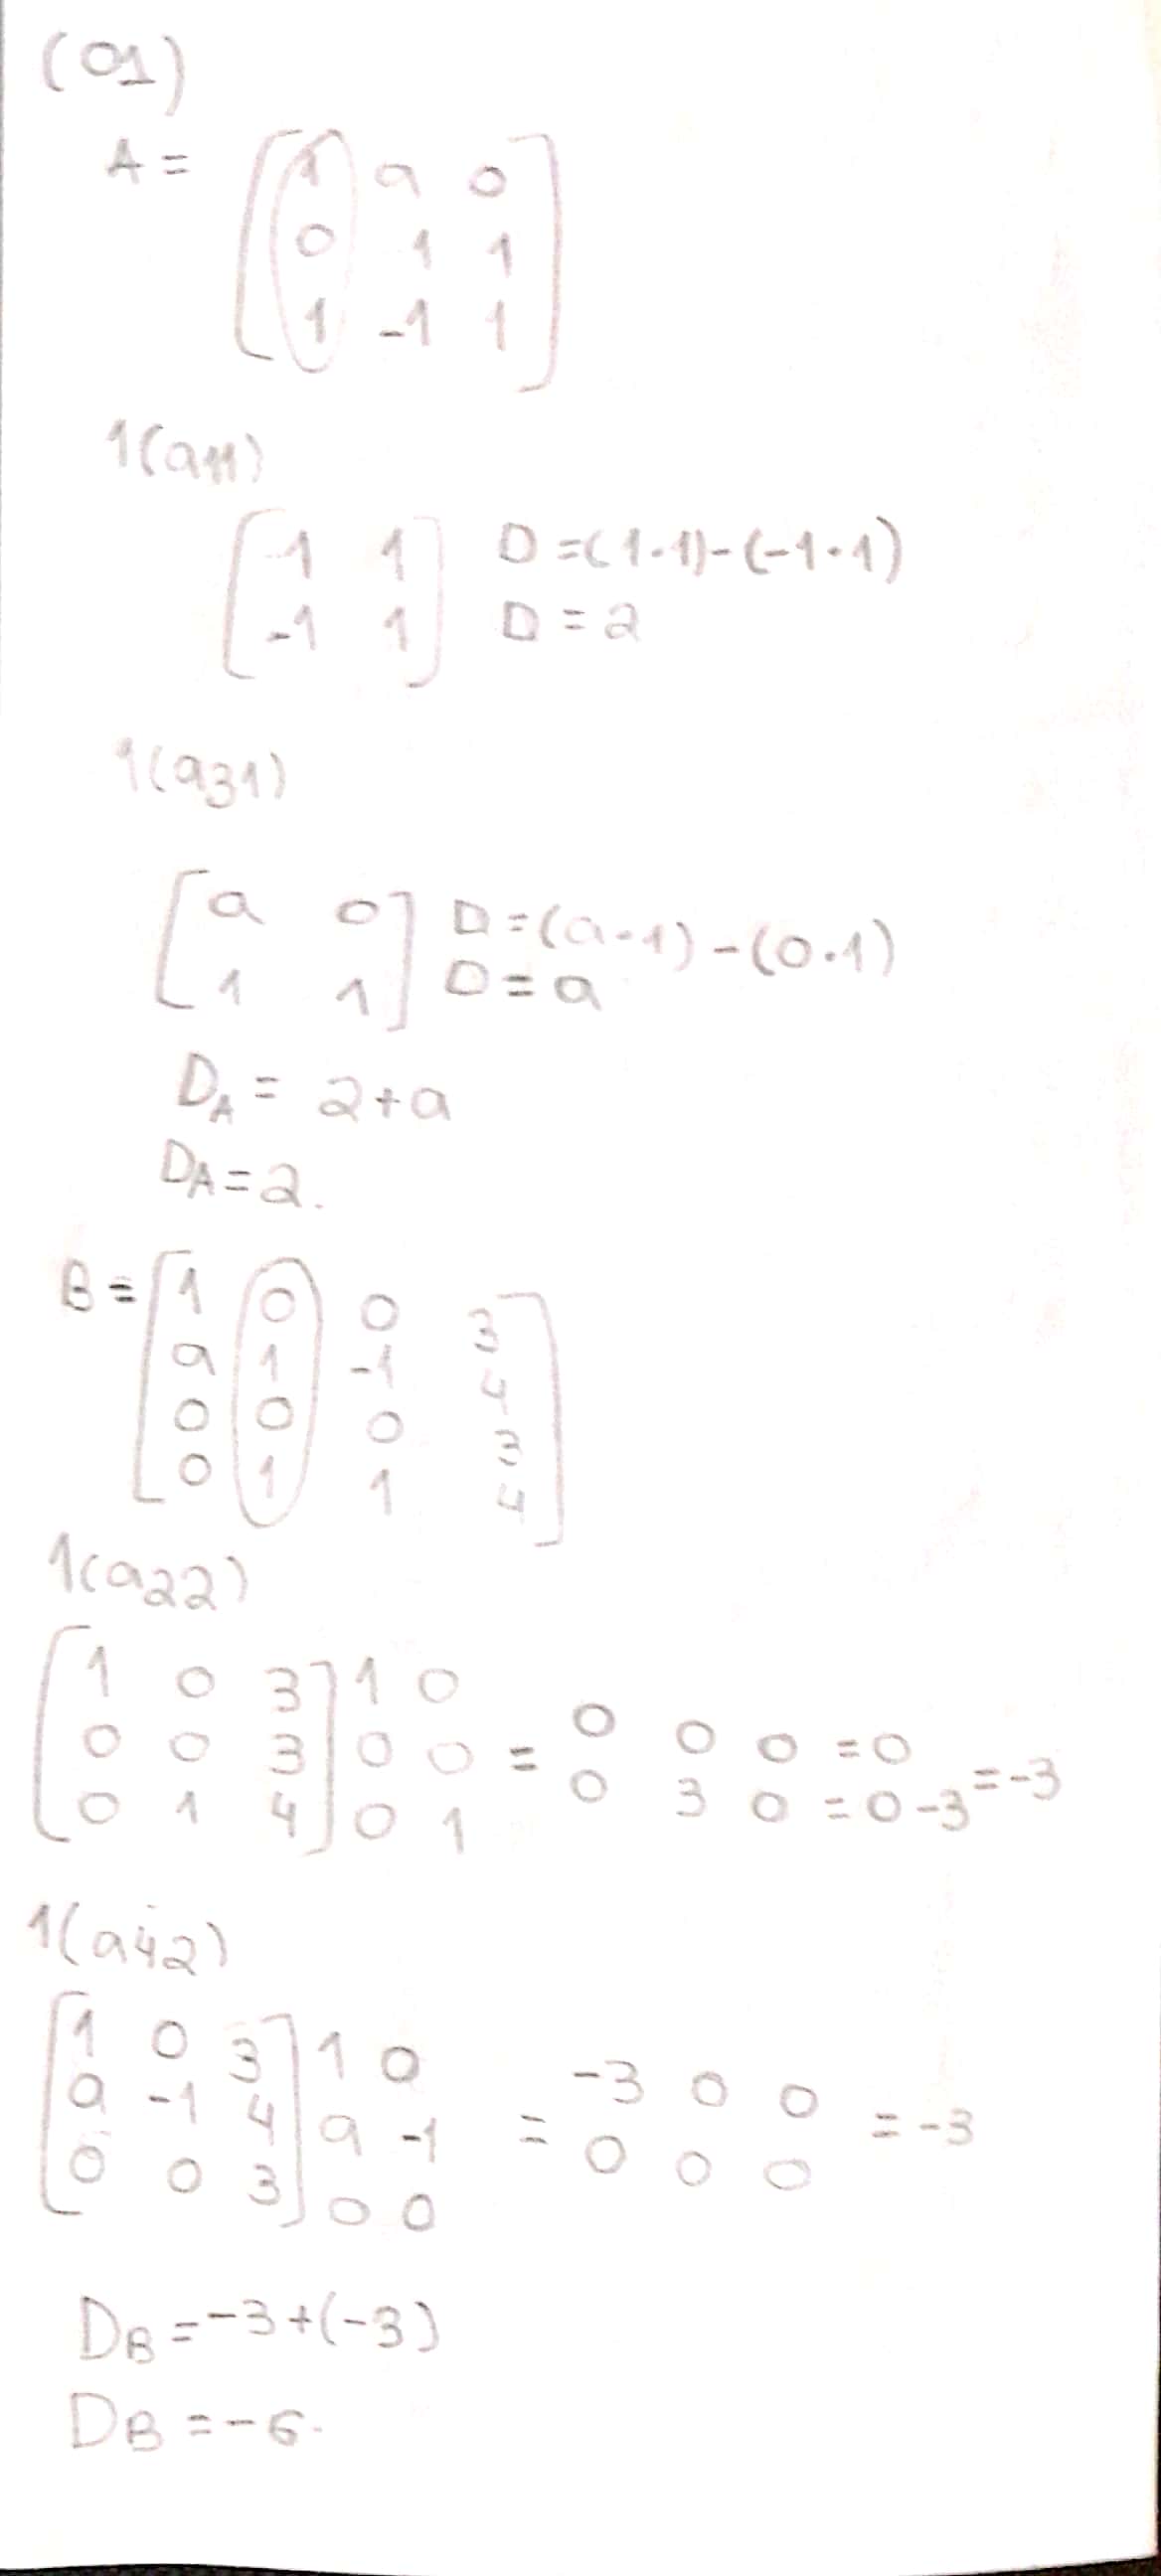 (01)
A = [1 a 0
0 1 1
1 -1 1]
1(a11)
[1 1
-1 1]
D = (1·1)-(-1·1)
D = 2
1(a31)
[a 0
1 1]
D = (a·1) - (0·1)
D = a
DA = 2+a
DA = 2.
B = [1 0 0 3
a 1 -1 4
0 0 0 3
0 1 1 4]
1(a22)
[1 0 3] 1 0
[0 0 3] 0 0 =
[0 1 4] 0 1
0 0 0 = 0
0 3 0 = 0-3 = -3
1(a42)
[1 0 3] 1 0
[a -1 4] a -1 =
[0 0 3] 0 0
-3 0 0
0 0 0 = -3
DB = -3+(-3)
DB = -6.